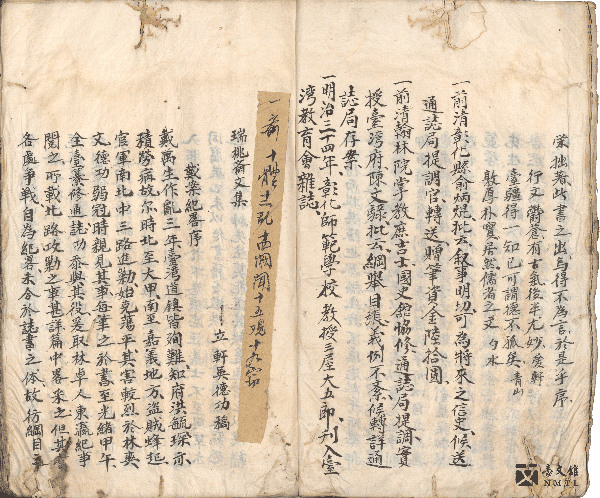 蒙拙著此書之出烏得不為言於是乎序
行文鬱蒼有古氣後半尤妙 愛軒
臺疆得一知已可謂德不孤矣 青山
敦厚朴實居然儒者之文 勺水
一前清彰化縣俞炳焜批云叙事明切可為將來之信史候送
通誌局提調官轉送贈筆資金陸拾圓
一前清翰林院掌教庶吉士國史館協修通誌局提調實
授臺灣府陳文騄批云綱舉目張義例不紊候轉詳通
誌局存案
一明治三十四年彰化師範學校教授三屋大五郎刊入臺
灣教育會雜誌
瑞桃齋文集
立軒吳德功稿
戴案紀畧序
戴萬生作亂三年臺灣道鎮皆殉難知府洪毓琛亦
積勞病故尔時北至大甲南至嘉義地方盜賊蜂起
官軍南北中三路進勦始克蕩平其害較烈於林爽
文德功弱冠時親見其事每筆之於書至光緒甲午
全臺纂修通誌功忝與其役爰取林卓人東瀛紀事
閱之所載北路攻勦之事甚詳篇中畧采之但其
各處爭戰自為紀畧未合於誌書之体故仿綱目
臺文館
NMTL